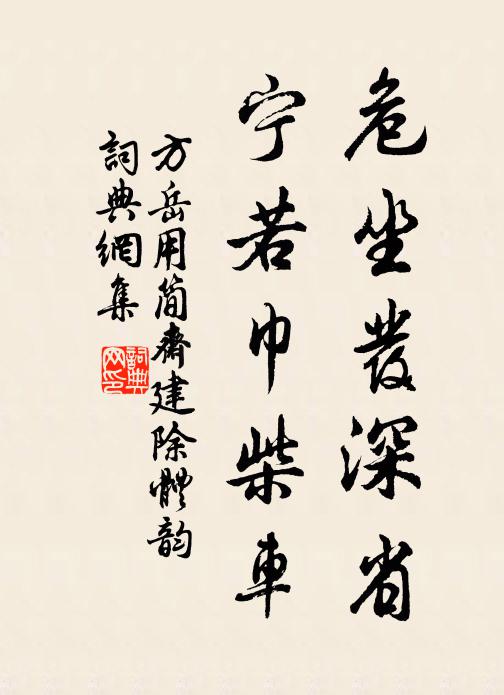 危坐發深省
宁若巾柴車
方岳用簡齋建除體韵
詞典網集
詞典网印